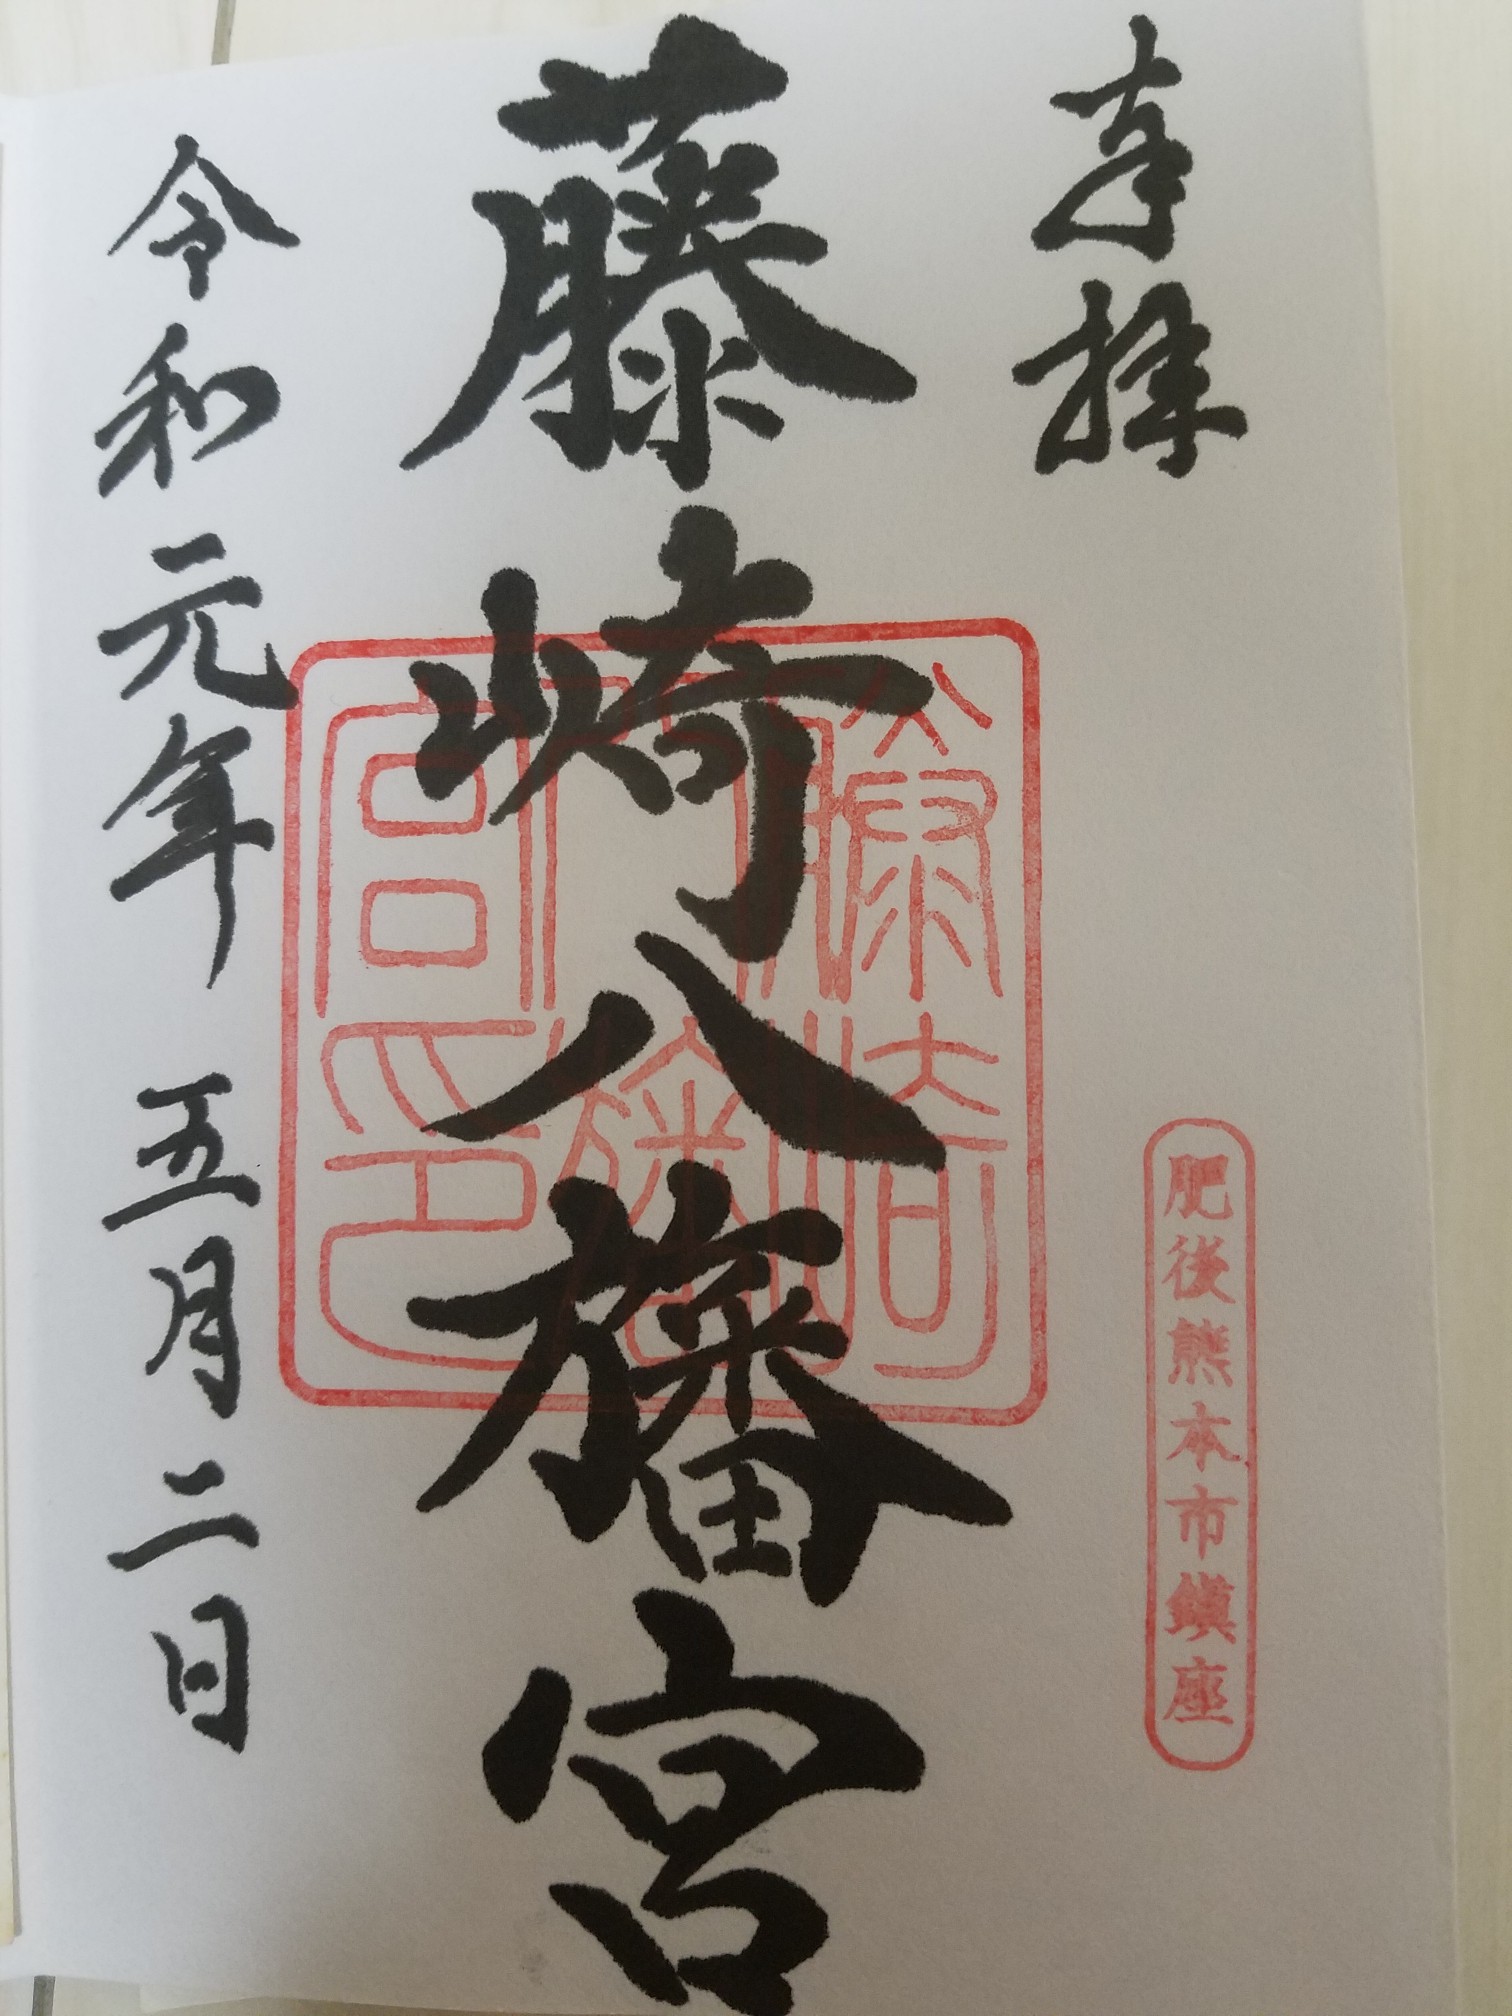 奉拝
肥後熊本市鎮座
藤崎八旛宮
藤崎
八旛
宮印
令和元年 五月二日